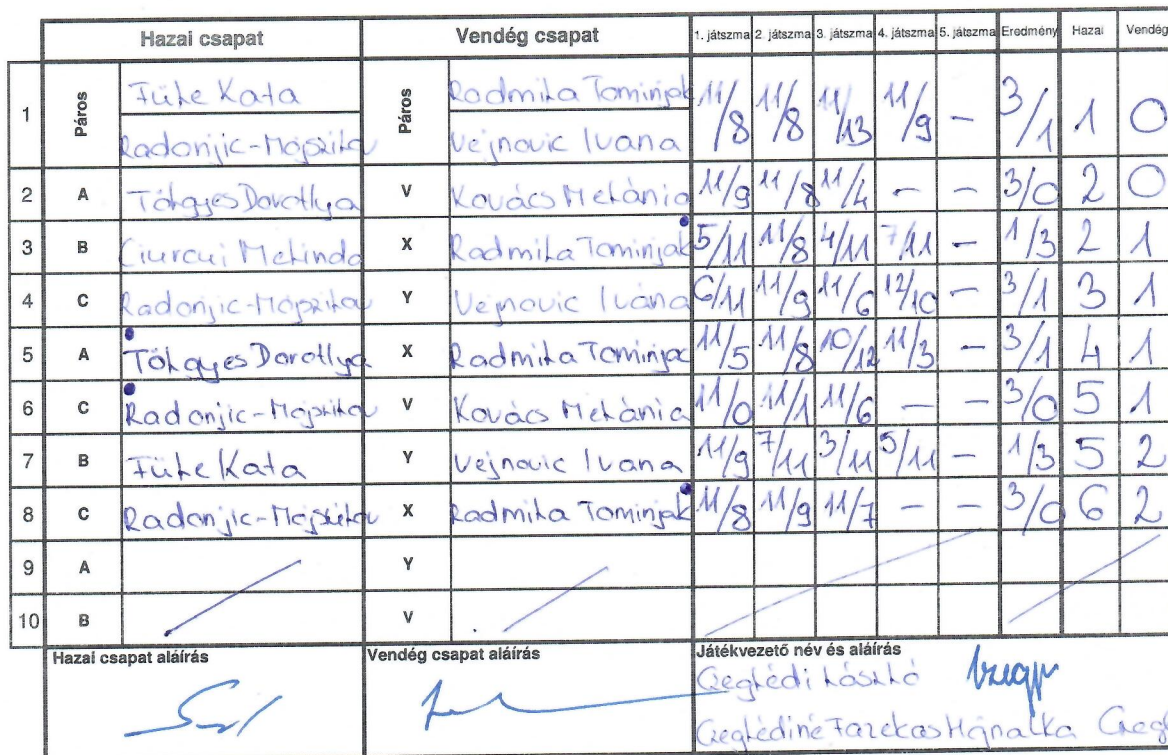 Hazai csapat Vendég csapat 1. játszma 2. játszma 3. játszma 4. játszma 5. játszma Eredmény Hazai Vendég
1 Páros Füke Kata Páros Radmila Tominjak 11/8 11/8 11/13 11/9 – 3/1 1 0
Radonjic-Majszikov Vejnovic Ivana
2 A Tölgyes Dorottya V Kovács Melánia 11/9 11/8 11/4 – – 3/0 2 0
3 B Ciurcui Melinda X Radmila Tominjak 5/11 11/8 4/11 7/11 – 1/3 2 1
4 C Radonjic-Majszikov Y Vejnovic Ivána 6/11 11/9 11/6 12/10 – 3/1 3 1
5 A Tölgyes Dorottya X Radmila Tominjac 11/5 11/8 10/12 11/3 – 3/1 4 1
6 C Radonjic-Majszikov V Kovács Melánia 11/0 11/1 11/6 – – 3/0 5 1
7 B Füke Kata Y Vejnovic Ivana 11/9 7/11 3/11 5/11 – 1/3 5 2
8 C Radonjic-Majszikov X Radmila Tominjak 11/8 11/9 11/7 – – 3/0 6 2
9 A Y
10 B V
Hazai csapat aláírás Vendég csapat aláírás Játékvezető név és aláírás
Ceglédi László
Ceglédiné Fazekas Hajnalka